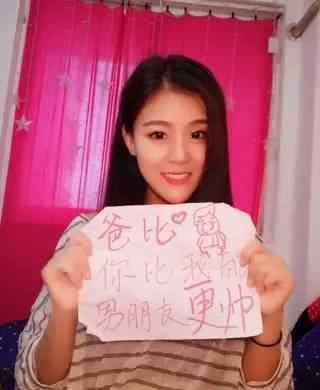 爸比♡
你比我前
男朋友更帅